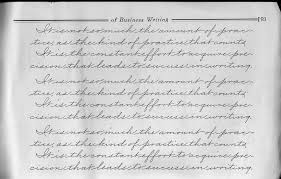 of Business Writing 93
It is not so much the amount of prac-
tice, as the kind of practice that counts.
It is the constant effort to acquire pre-
cision, that leads to success in writing.
It is not so much the amount of prac-
tice, as the kind of practice that counts.
It is the constant effort to acquire pre-
cision, that leads to success in writing.
It is not so much the amount of prac-
tice, as the kind of practice that counts.
It is the constant effort to acquire pre-
cision, that leads to success in writing.